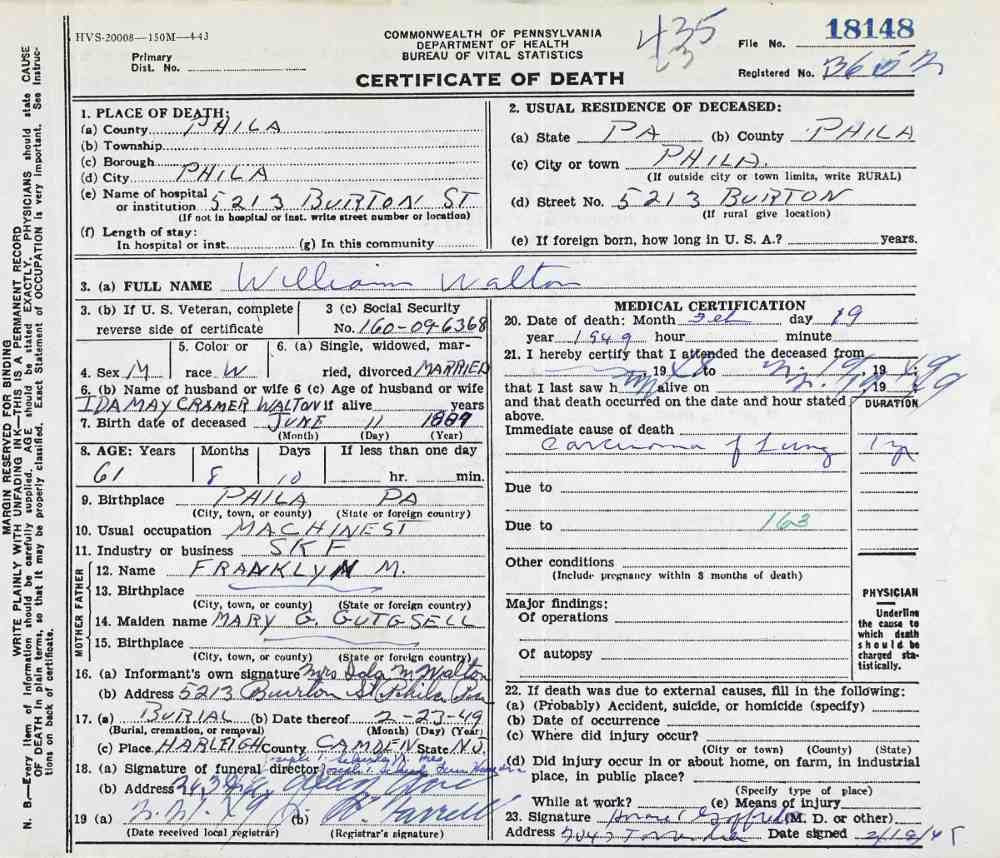 HVS-20008—150M—4-43
COMMONWEALTH OF PENNSYLVANIA
DEPARTMENT OF HEALTH
BUREAU OF VITAL STATISTICS
CERTIFICATE OF DEATH
Primary
Dist. No.
435
File No. 18148
Registered No.
MARGIN RESERVED FOR BINDING
WRITE PLAINLY WITH UNFADING INK—THIS IS A PERMANENT RECORD
N. B.—Every item of information should be carefully supplied. AGE should be stated EXACTLY. PHYSICIANS should state CAUSE
OF DEATH in plain terms, so that it may be properly classified. Exact Statement of OCCUPATION is very important. See instruc-
tions on back of certificate.
1. PLACE OF DEATH:
(a) County PHILA
(b) Township
(c) Borough
(d) City PHILA
(e) Name of hospital
or institution 5213 BURTON ST
(If not in hospital or inst. write street number or location)
(f) Length of stay:
In hospital or inst. (g) In this community
2. USUAL RESIDENCE OF DECEASED:
(a) State PA (b) County PHILA
(c) City or town PHILA.
(If outside city or town limits, write RURAL)
(d) Street No. 5213 BURTON
(If rural give location)
(e) If foreign born, how long in U. S. A.? years.
3. (a) FULL NAME William Walton
3. (b) If U. S. Veteran, complete
reverse side of certificate
3 (c) Social Security
No. 160-09-6368
4. Sex M
5. Color or
race W
6. (a) Single, widowed, mar-
ried, divorced MARRIED
6. (b) Name of husband or wife 6 (c) Age of husband or wife
IDA MAY CRAMER WALTON if alive years
7. Birth date of deceased JUNE 11
(Month) (Day) (Year)
8. AGE: Years Months Days If less than one day
61 8 10 hr. min.
9. Birthplace PHILA PA
(City, town, or county) (State or foreign country)
10. Usual occupation MACHINEST
11. Industry or business SKF
FATHER
12. Name FRANKLYN M.
13. Birthplace
(City, town, or county) (State or foreign country)
MOTHER
14. Maiden name MARY G. GUTGSELL
15. Birthplace
(City, town, or county) (State or foreign country)
16. (a) Informant's own signature Mrs Ida M Walton
(b) Address 5213 Burton St Phila Pa
17. (a) BURIAL (b) Date thereof 2-23-49
(Burial, cremation, or removal) (Month) (Day) (Year)
(c) Place HARLEIGH County CAMDEN State N.J.
18. (a) Signature of funeral director
(b) Address
19 (a) (b)
(Date received local registrar) (Registrar's signature)
MEDICAL CERTIFICATION
20. Date of death: Month Feb day 19
year 1949 hour minute
21. I hereby certify that I attended the deceased from
19 48 to 19 49;
that I last saw h alive on , 19 49
and that death occurred on the date and hour stated
above.
DURATION
Immediate cause of death
Carcinoma of Lung 1 yr
Due to
Due to 163
Other conditions
(Include pregnancy within 3 months of death)
Major findings:
Of operations
Of autopsy
PHYSICIAN
Underline
the cause to
which death
should be
charged sta-
tistically.
22. If death was due to external causes, fill in the following:
(a) (Probably) Accident, suicide, or homicide (specify)
(b) Date of occurrence
(c) Where did injury occur?
(City or town) (County) (State)
(d) Did injury occur in or about home, on farm, in industrial
place, in public place?
(Specify type of place)
While at work? (e) Means of injury
23. Signature (M. D. or other)
Address Date signed